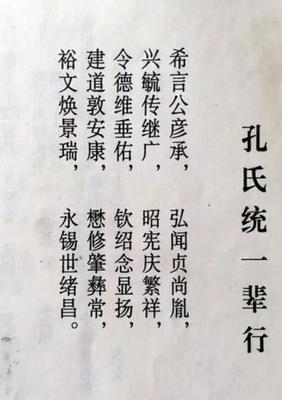 孔氏统一辈行
希言公彦承，弘闻贞尚胤，
兴毓传继广，昭宪庆繁祥，
令德维垂佑，钦绍念显扬，
建道敦安康，懋修肇彝常，
裕文焕景瑞，永锡世绪昌。